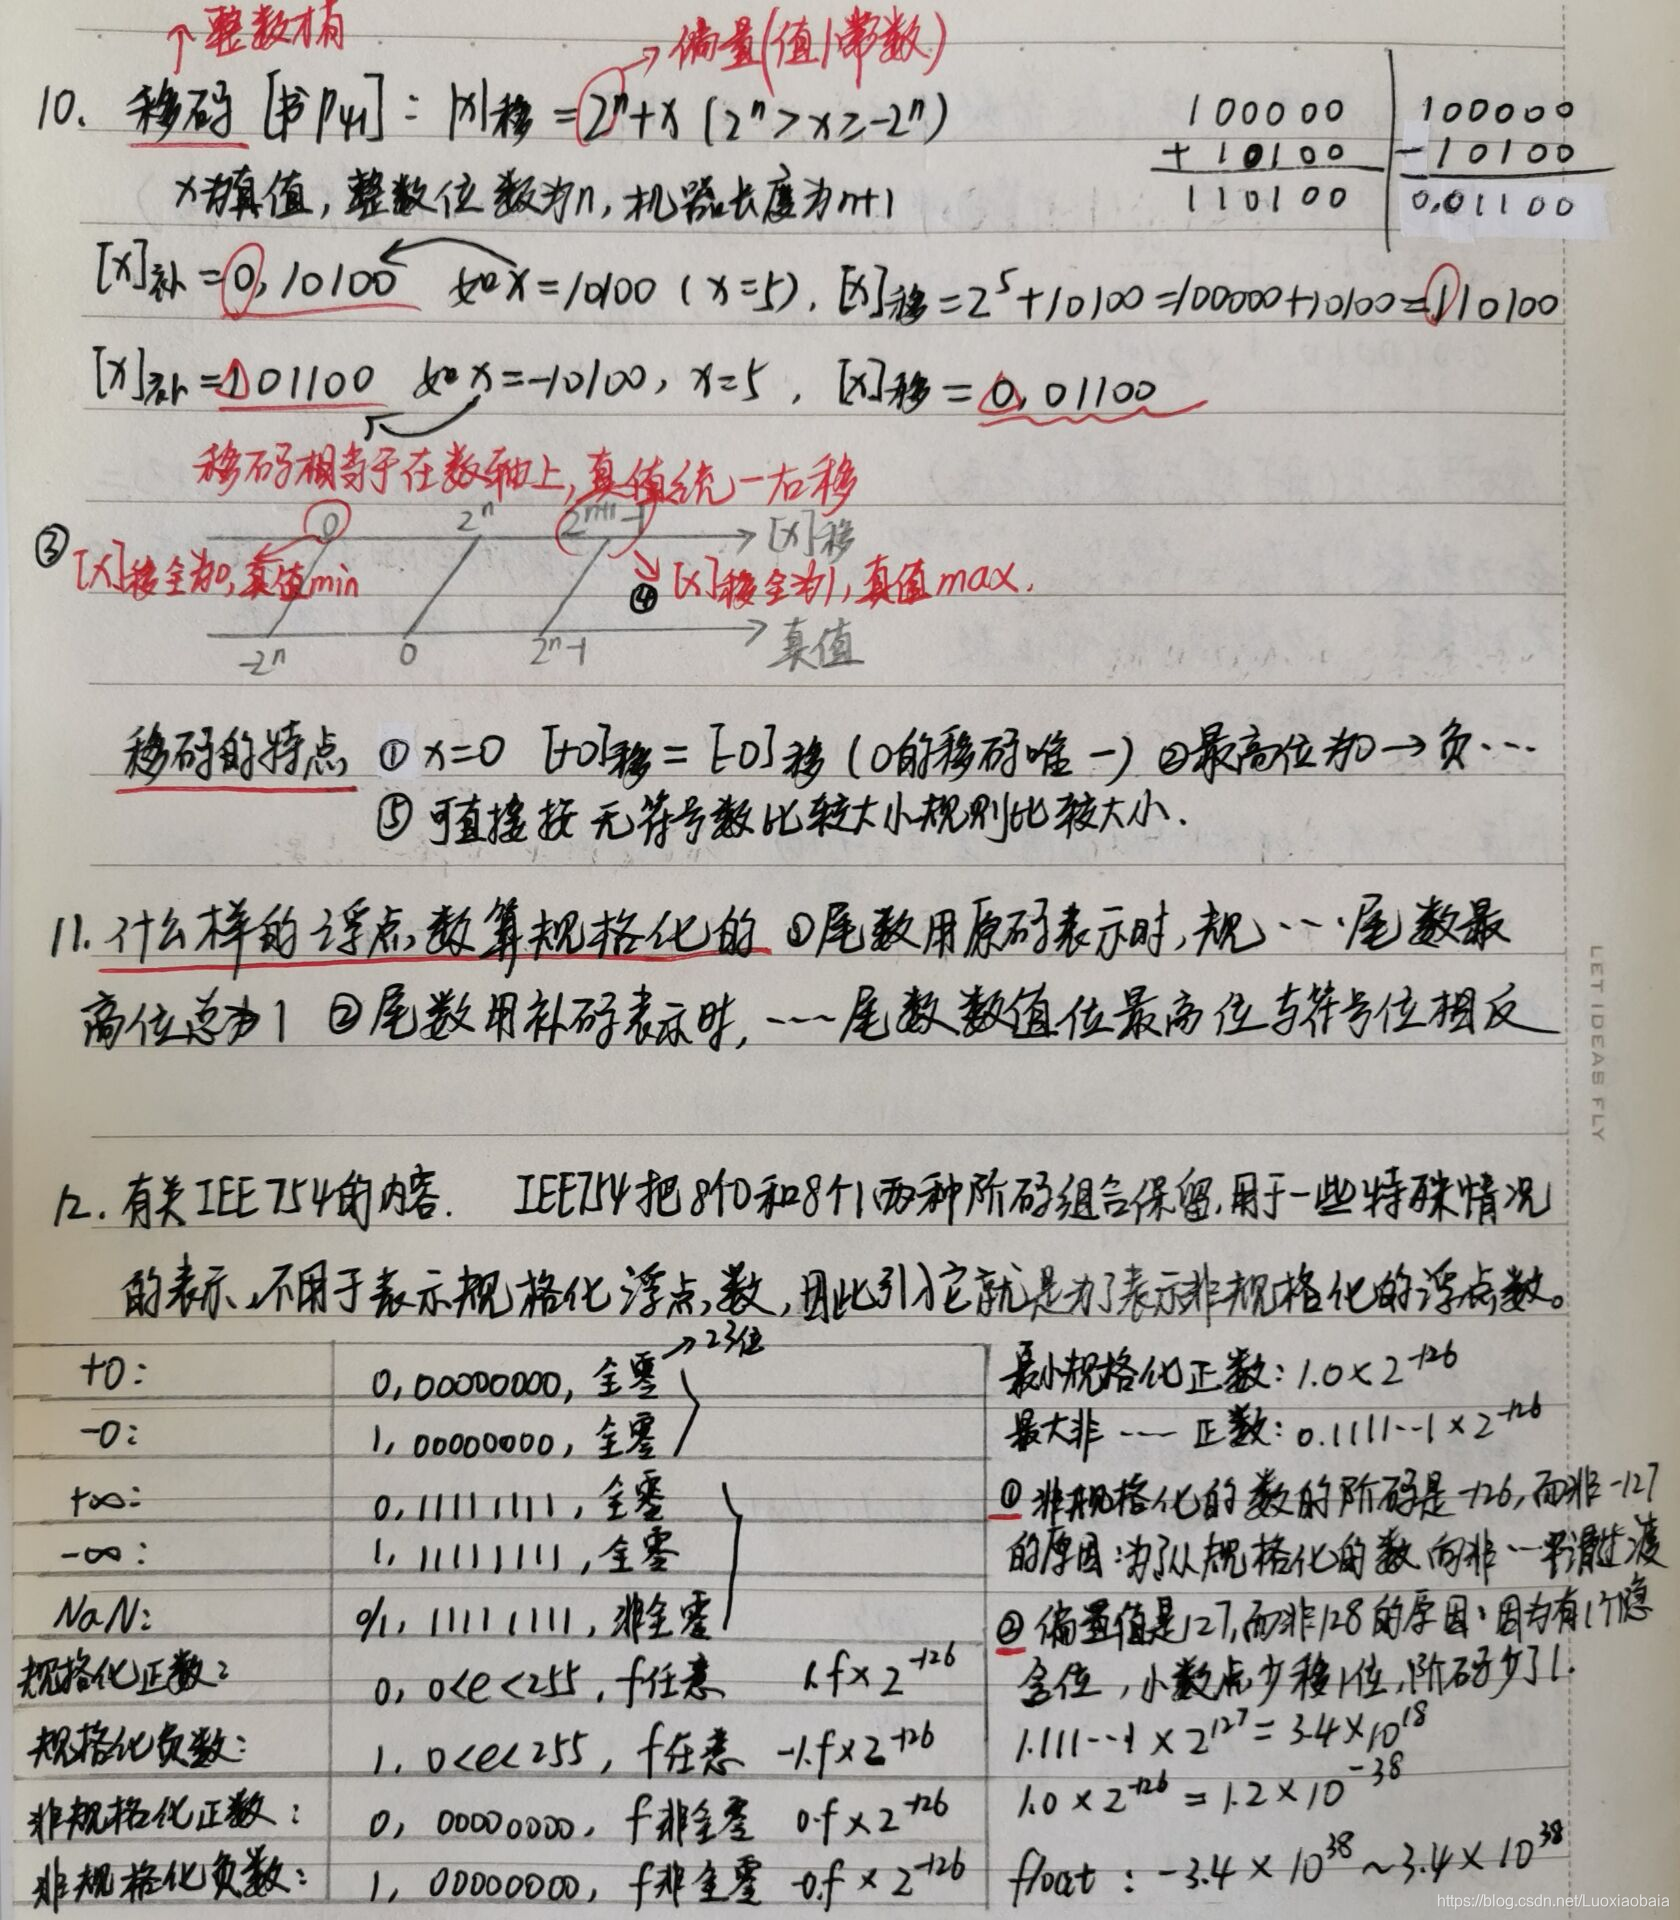 ↑整数才有
→偏量(值/常数)
10. 移码 [书P41]: [x]移 = 2ⁿ+x (2ⁿ > x ≥ -2ⁿ)
x为真值, 整数位数为n, 机器长度为n+1
100000
+ 10100
110100
100000
- 10100
0,01100
[x]补 = 0,10100 如x=10100 (x=5), [x]移=2⁵+10100=100000+10100=110100
[x]补 = 101100 如x=-10100, x=5, [x]移 = 0,01100
移码相当于在数轴上,真值统一右移
0 2ⁿ 2ⁿ⁺¹-1 [x]移
③ [x]移全为0,真值min
④ [x]移全为1,真值max.
-2ⁿ 0 2ⁿ-1 真值
移码的特点 ① x=0 [+0]移 = [-0]移 (0的移码唯一) ②最高位为0→负…
⑤ 可直接按无符号数比较大小规则比较大小.
11. 什么样的浮点数算规格化的 ①尾数用原码表示时,规…尾数最
高位总为1 ②尾数用补码表示时,…尾数数值位最高位与符号位相反
LET IDEAS FLY
12. 有关IEE754的内容. IEE754把8个0和8个1两种阶码组合保留,用于一些特殊情况
的表示,不用于表示规格化浮点数,因此引入它就是为了表示非规格化的浮点数。
→23位
+0: 0,00000000,全零
-0: 1,00000000,全零
+∞: 0,11111111,全零
-∞: 1,11111111,全零
NaN: 0/1,11111111,非全零
规格化正数: 0, 0<e<255, f任意 1.f×2⁻¹²⁶
规格化负数: 1, 0<e<255, f任意 -1.f×2⁻¹²⁶
非规格化正数: 0, 00000000, f非全零 0.f×2⁻¹²⁶
非规格化负数: 1, 00000000, f非全零 -0.f×2⁻¹²⁶
最小规格化正数: 1.0×2⁻¹²⁶
最大非…正数: 0.1111…1×2⁻¹²⁶
① 非规格化的数的阶码是-126,而非-127
的原因:为了从规格化的数向非…平滑过渡
② 偏置值是127,而非128的原因:因为有1个隐
含位, 小数点少移1位,阶码少了1.
1.111…1×2¹²⁷=3.4×10¹⁸
1.0×2⁻¹²⁶=1.2×10⁻³⁸
float: -3.4×10³⁸~3.4×10³⁸
https://blog.csdn.net/Luoxiaobaia